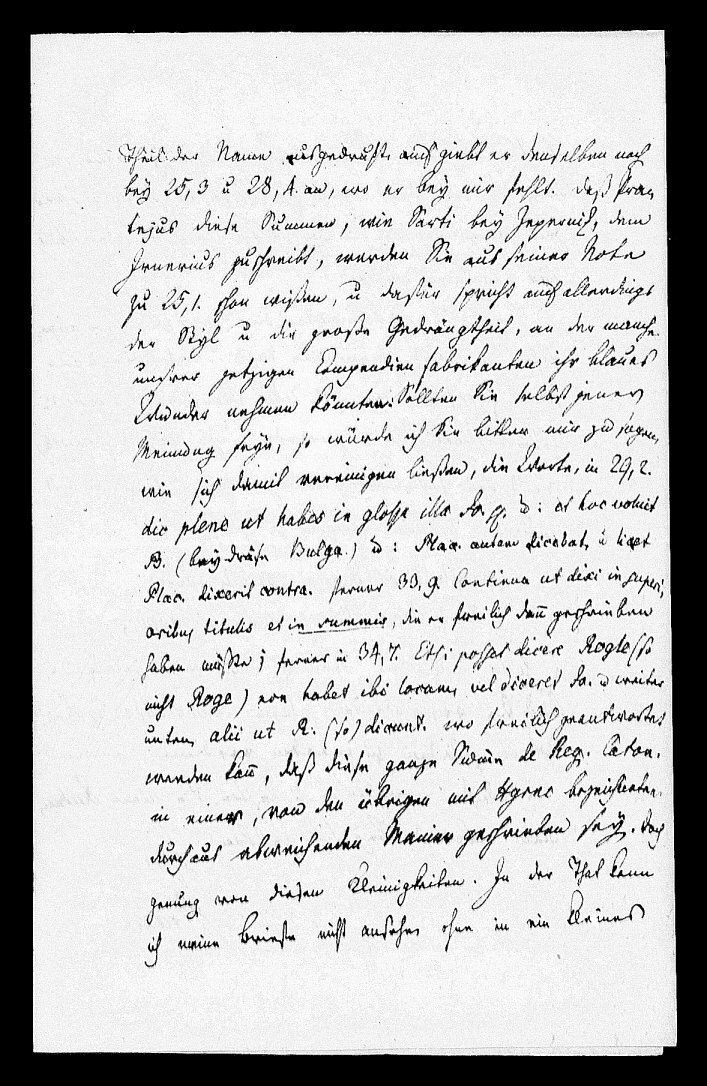 Theil der Name ausgedrukt, auch giebt er denselben noch
bey 25,3 u 28,4. an, wo er bey mir fehlt. Daß Pra-
tejus diese Summen, wie Sarti bey Zepernick, dem
Irnerius zuschreibt, werden Sie aus seiner Note
zu 25,1. schon wissen, u dafür spricht auch allerdings
der Styl u die große Gedrängtheit, an der manche
unsrer jetzigen Compendien fabrikanten ihr blaues
Wunder nehmen könnten. Sollten Sie selbst jener
Meinung seyn, so würde ich Sie bitten mir zu sagen,
wie sich damit vereinigen ließen, die Worte, in 29,2.
dic plene ut habes in glossa illa Jo. et hoc voluit
B. (bey dräse Bulga.) : Plac. autem dicebat, u licet
Plac. dixerit contra. ferner 33,9. Continua ut dixi in superi-
oribus titulis et in summis, die er freilich dann geschrieben
haben müßte; ferner in 34,7. Etsi posset dicere Rogle (so
nicht Roge) non habet ibi locum, vel diceret Jo. u weiter
unten, alii ut R. (so) dicunt. wo freilich geantwortet
werden kann, daß diese ganze Summe de Reg. Caton.
in einer, von den übrigen mit Hgrec bezeichneten
durchaus abweichenden Manier geschrieben sey. Doch
genung von diesen Kleinigkeiten. In der That kann
ich meine Briefe nicht ansehen, ohne in ein kleines